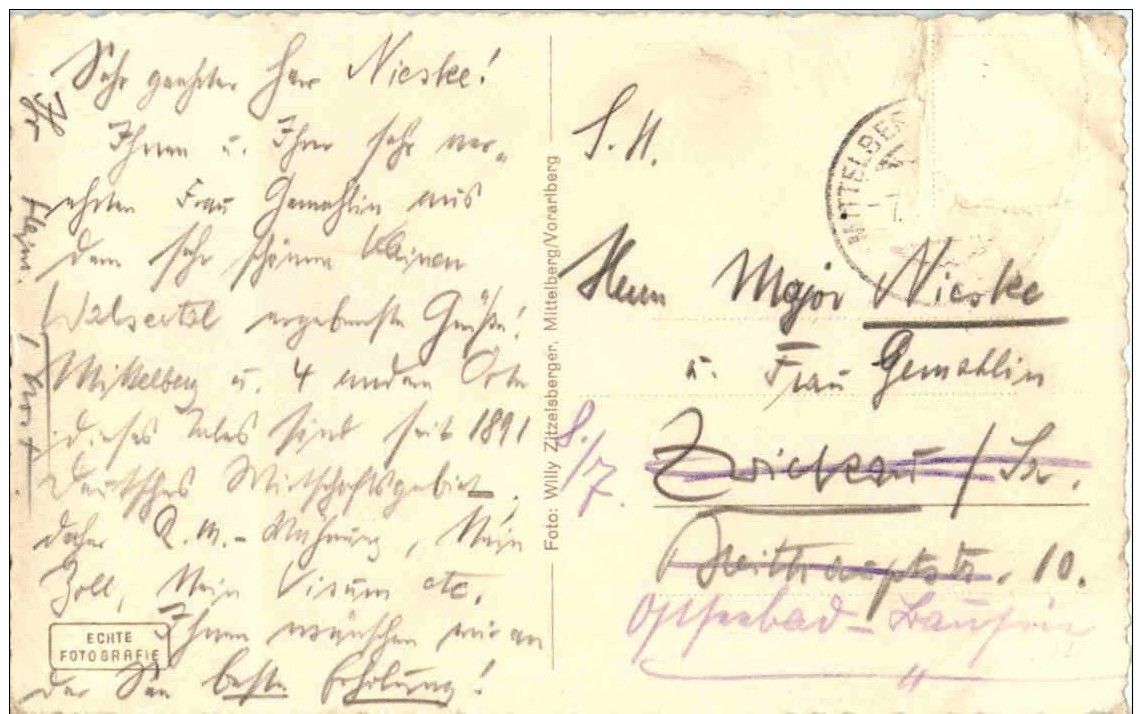 Sehr geehrter Herr Nieske!
Ihnen u. Ihrer sehr ver-
ehrten Frau Gemahlin aus
dem sehr schönen Kleinen
Walsertal ergebenste Grüße!
Mittelberg u. 4 andere Orte
dieses Tales sind seit 1891
Deutsches Wirtschaftsgebiet,
daher R.M.-Währung, kein
Zoll, kein Visum etc.
Ihnen wünschen wir an
der See beste Erholung!
Ihr
ECHTE
FOTOGRAFIE
Foto: Willy Zitzelsberger, Mittelberg/Vorarlberg
MITTELBER
S. H.
Herrn Major Nieske
u. Frau Gemahlin
Zwickau / Sa.
10.
Ostseebad-